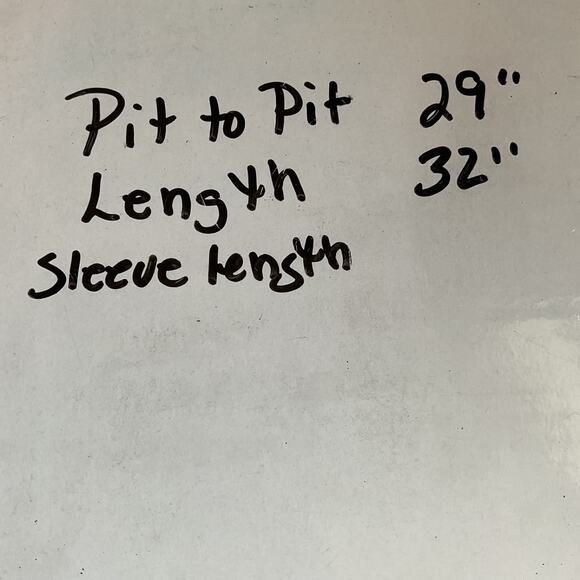 Pit to Pit 29"
Length 32"
Sleeve length